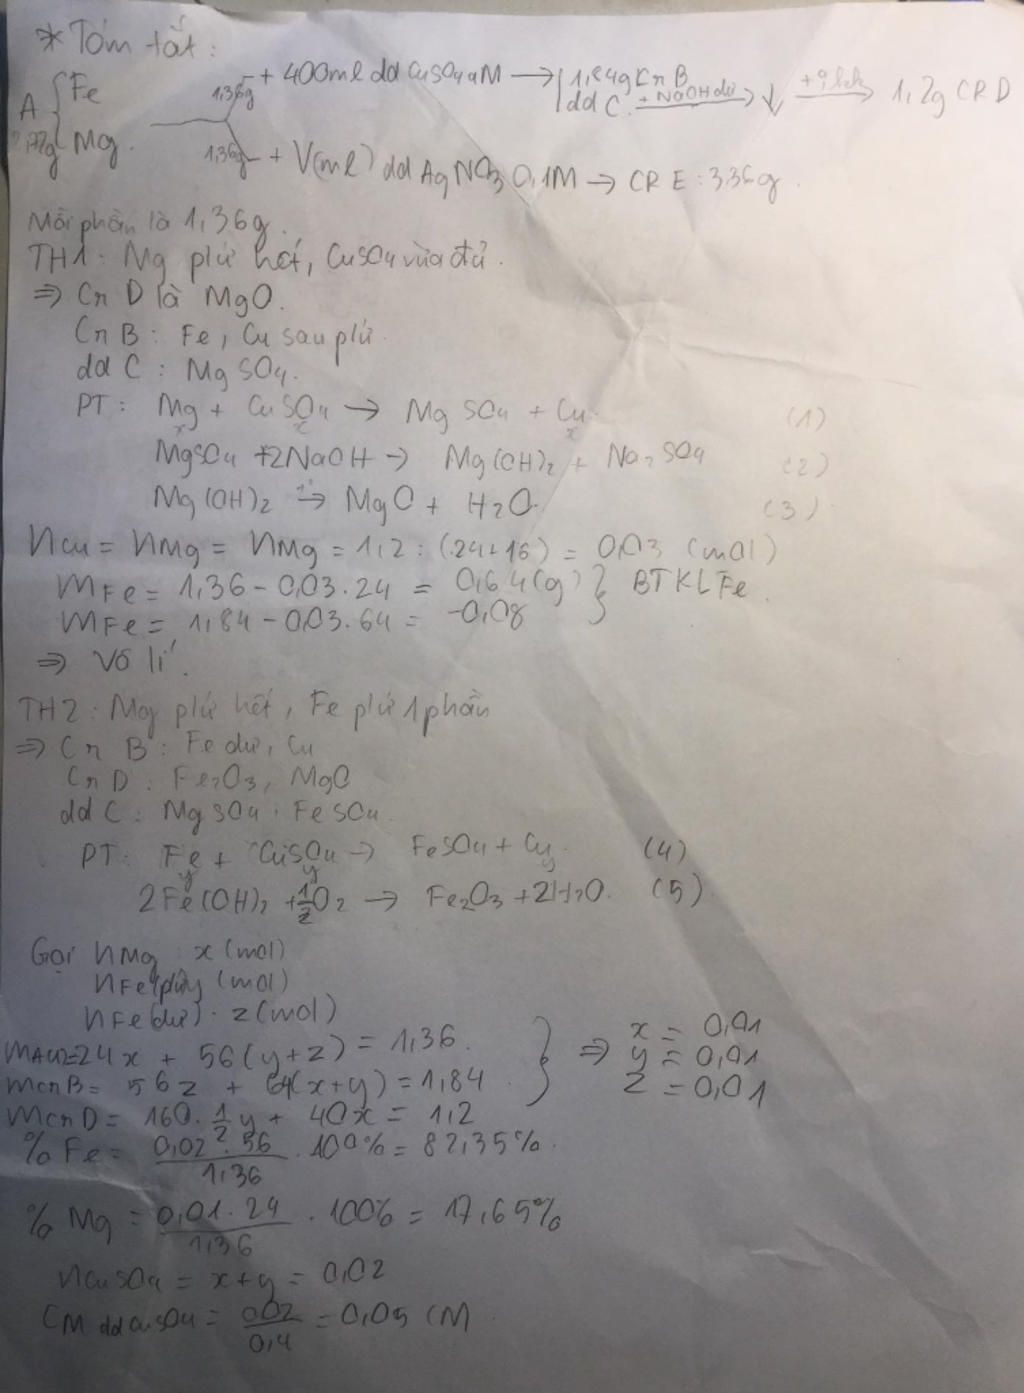 * Tóm tắt:
A { Fe
Mg
2,72g
1,36g + 400ml dd CuSO4 aM → | 1,84g CrB
dd C + NaOH dư → ↓ + → 1,2g CRD
1,36g + V(ml) dd AgNO3 0,1M → CR E: 3,36g.
Mỗi phần là 1,36g.
TH1: Mg pứ hết, CuSO4 vừa đủ.
⇒ Cr D là MgO.
Cr B: Fe, Cu sau pứ.
dd C: MgSO4.
PT: Mg + CuSO4 → MgSO4 + Cu. (1)
x x x
MgSO4 + 2NaOH → Mg(OH)2 + Na2SO4 (2)
Mg(OH)2 → MgO + H2O. (3)
nCu = nMg = nMg = 1,2 : (24+16) = 0,03 (mol)
mFe = 1,36 - 0,03.24 = 0,64(g) } BTKL Fe.
mFe = 1,84 - 0,03.64 = -0,08
⇒ Vô lí.
TH2: Mg pứ hết, Fe pứ 1 phần
⇒ Cr B: Fe dư, Cu
Cr D: Fe2O3, MgO
dd C: MgSO4, FeSO4
PT: Fe + CuSO4 → FeSO4 + Cu. (4)
y y y
2Fe(OH)2 + 1/2O2 → Fe2O3 + 2H2O. (5)
Gọi nMg: x (mol)
nFe(pứ) y (mol)
nFe(dư): z (mol)
24x + 56(y+z) = 1,36. } ⇒ x = 0,01
mcrB = 56z + 64(x+y) = 1,84 y = 0,01
mcrD = 160.1/2y + 40x = 1,2 z = 0,01
% Fe = 0,02.56/1,36 . 100% = 82,35%.
% Mg = 0,01.24/1,36 . 100% = 17,65%
nCuSO4 = x+y = 0,02
CM dd CuSO4 = 0,02/0,4 = 0,05 CM